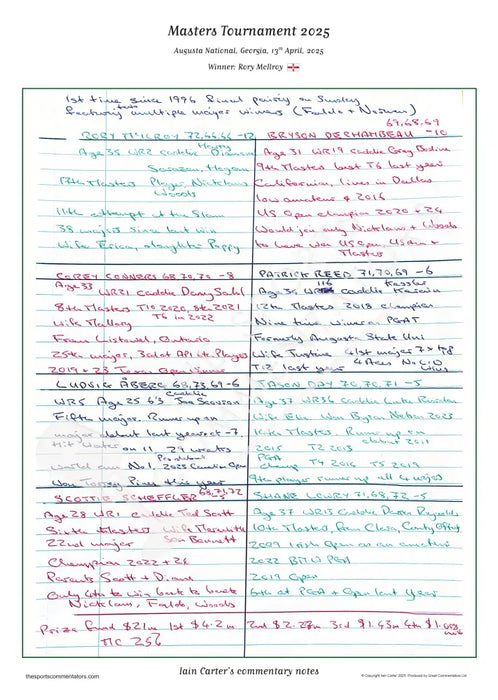 Masters Tournament 2025
Augusta National, Georgia, 13th April, 2025
Winner: Rory McIlroy
1st time since 1996 final pairing on Sunday
featuring multiple major winners (Faldo + Norman)
69,68,69
RORY McILROY 72,66,66 -12
Age 35 WR2 caddie Harry Diamond
Sarazen, Hogan
17th Masters Player, Nicklaus
Woods
11th attempt at the Slam
38 majors since last win
Wife Erica, daughter Poppy
BRYSON DECHAMBEAU -10
Age 31 WR19 caddie Greg Bodine
9th Masters best T6 last year
Californian, lives in Dallas
low amateur 2016
US Open champion 2020 + 24
Would join only Nicklaus + Woods
to have won US Open, US Am +
Masters
COREY CONNERS 68,70,70 -8
Age 33 WR21 caddie Danny Sahl
8th Masters T10 2020, 8th 2021
Wife Mallory T6 in 2022
From Listowel, Ontario
25th major, 3rd at API + Players
2019 + 23 Texas Open winner
PATRICK REED 71,70,69 -6
Age 34 116 caddie Kessler Karain
12th Masters 2018 champion
Nine time winner on PGAT
Formerly Augusta State Uni
Wife Justine 41st major
T12 last year 4 Aces No LIV wins
LUDVIG ÅBERG 68,73,69 -6
WR5 Age 25 6'3 caddie Joe Skovron
Fifth major. Runner up on
major debut last year at -7.
Hit water on 11
World am No 1. 2023
Won Torrey Pines this year
JASON DAY 70,70,71 -5
Age 37 WR36 caddie Luke Reardon
Wife Ellie Won Byron Nelson 2023
14th Masters. Runner up on
debut 2011
2015 PGA champ T2 2013
T4 2016 T5 2019
SCOTTIE SCHEFFLER 68,71,72 -5
Age 28 WR1 caddie Ted Scott
Sixth Masters Wife Meredith
22nd major Son Bennett
Champion 2022 + 24
Parents Scott + Diane
Only 4th to win back to back
Nicklaus, Faldo, Woods
SHANE LOWRY 71,68,72 -5
Age 37 WR13 caddie Darren Reynolds
10th Masters, from Clara, County Offaly
2009 Irish Open as an amateur
2022 BMW PGA
2019 Open
6th at PGA + Open last year
Prize fund $21m 1st $4.2m 2nd $2.268m 3rd $1.43m 4th $1.008
mill
TIC 256
Iain Carter's commentary notes
thesportscommentators.com